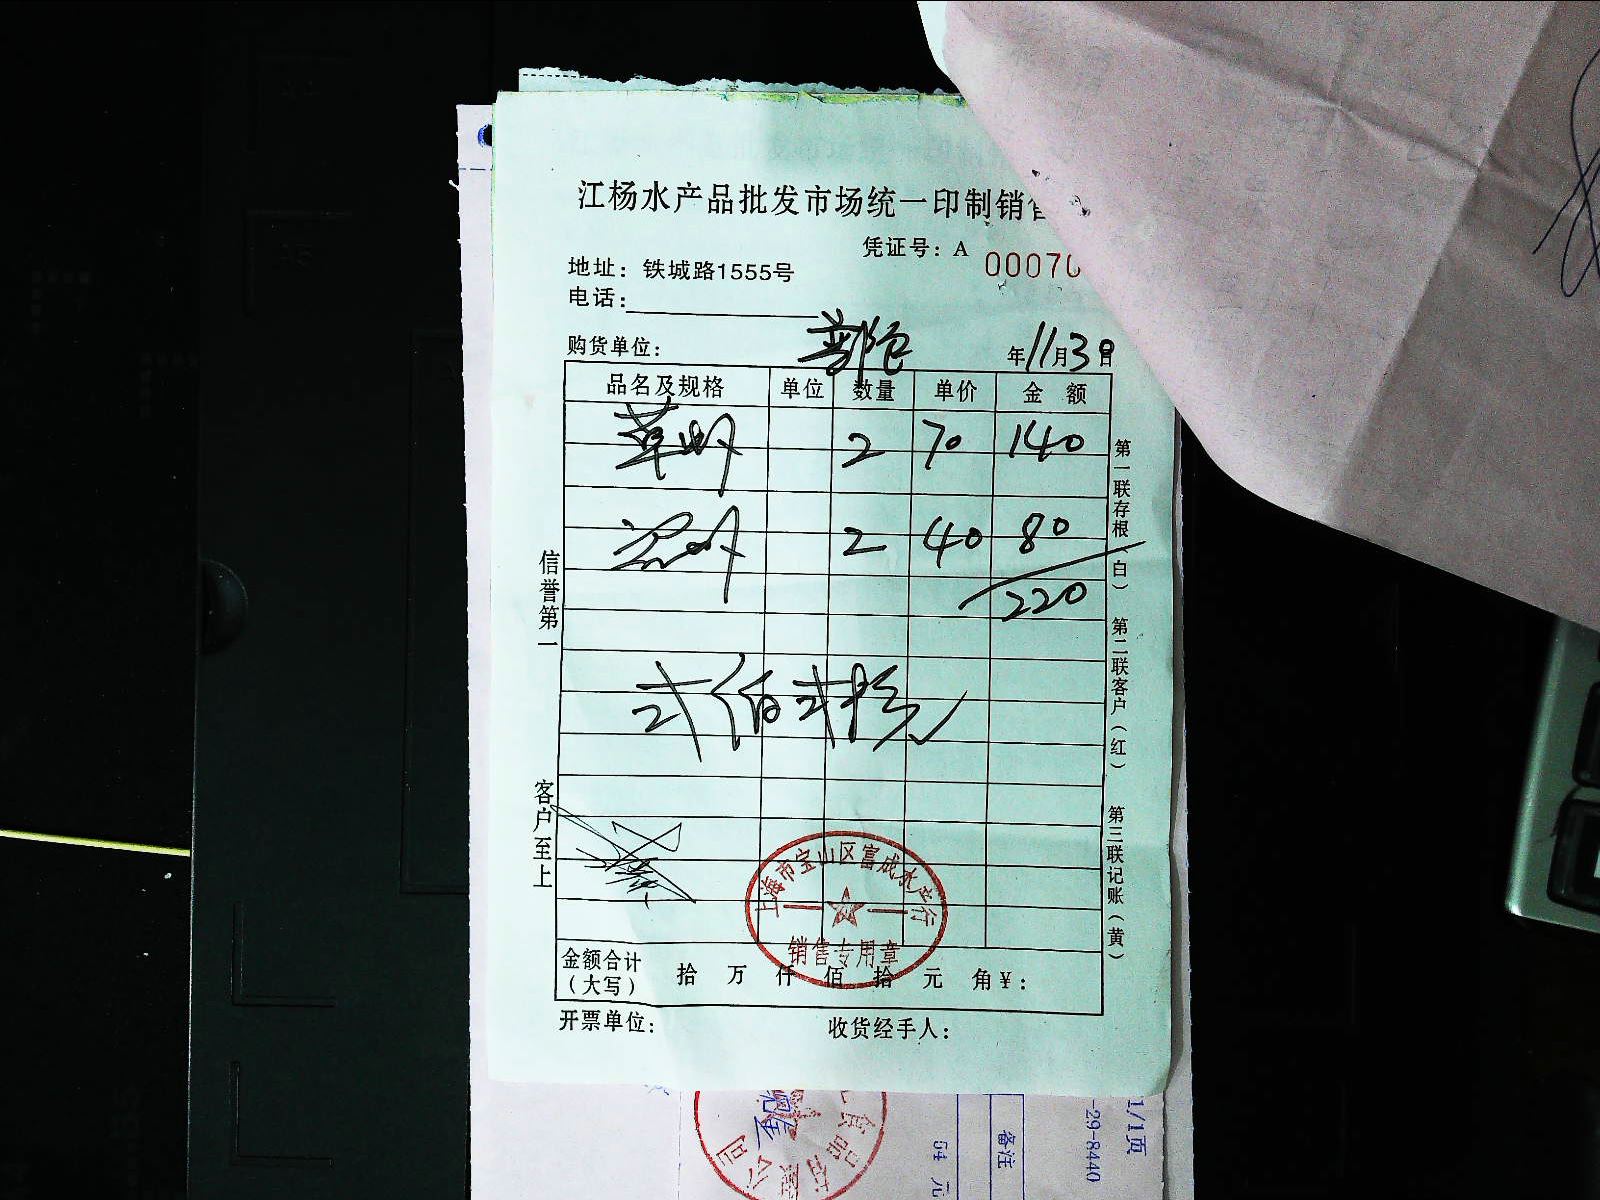 江杨水产品批发市场统一印制销售
凭证号：A 00070
地址：铁城路1555号
电话：
购货单位：
年11月3日
品名及规格 单位 数量 单价 金 额
草虾 2 70 140
2 40 80
220
弍佰弍拾元
信誉第一
客户至上
第一联存根（白） 第二联客户（红） 第三联记账（黄）
上海市宝山区富成水产行
销售专用章
金额合计（大写） 拾 万 仟 佰 拾 元 角 ¥：
开票单位： 收货经手人：
备注
54 元
-29-8440
1/1页